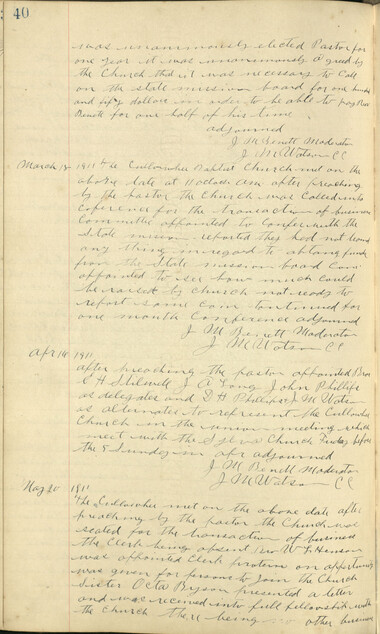 40
was unanimously elected Pastor for
one year it was unanimously agreed by
the Church that it was necessary to Call
on the state mission board for one hundred
and fifty dollars in order to be able to pay Bro
Benett for one half of his time
adjourned
J M Benett Moderator
J M Watson CC
March 18 1911 The Cullowhee Baptist Church met on the
above date at 11 oclock am after preaching
by the pastor the Church was Called into
Conference for the transaction of business
Committee appointed to Confer with the
State mission reported they had not learned
any thing in regard to obtaing funds
from the State mission board Com
appointed to see how much could
be raised by Church not ready to
report same Com Continued for
one month Conference adjourned
J M Benett Moderator
J M Watson CC
Apr 14 1911
after preaching the pastor appointed Bros
E H Stilwell J A Long John Phillips
as delegates and D H Phillips J M Watson
as alternates to represent the Cullowhee
Church in the union meeting which
meet with the Sylva Church Friday before
the 5 Sunday in apr adjourned
J M Benett Moderator
J M Watson CC
May 20 1911
The Cullowhee met on the above date after
preaching by the pastor the Church was
seated for the transaction of business
the Clerk being absent Bro W F Henson
was appointed Clerk protem an oppertunity
was given for persons to Join the Church
Sister Octa Bryson presented a letter
and was received into full fellowship with
the Church there being no other business